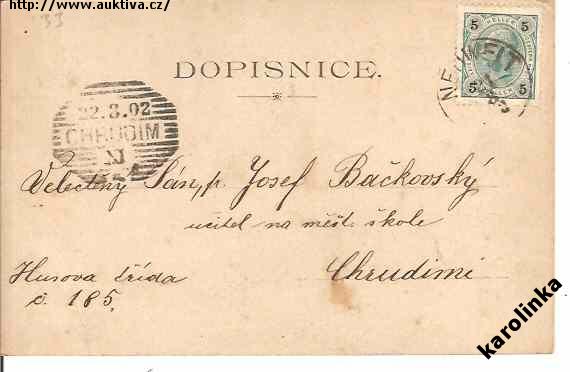 http://www.auktiva.cz/
33
5 HELLER 5
5 HELLER 5
DOPISNICE.
22.3.02
CHRUDIM
Velectěný Pán, p. Josef Bačkovský
učitel na měst. škole
Husova třída
č. 185.
Chrudimi
karolinka